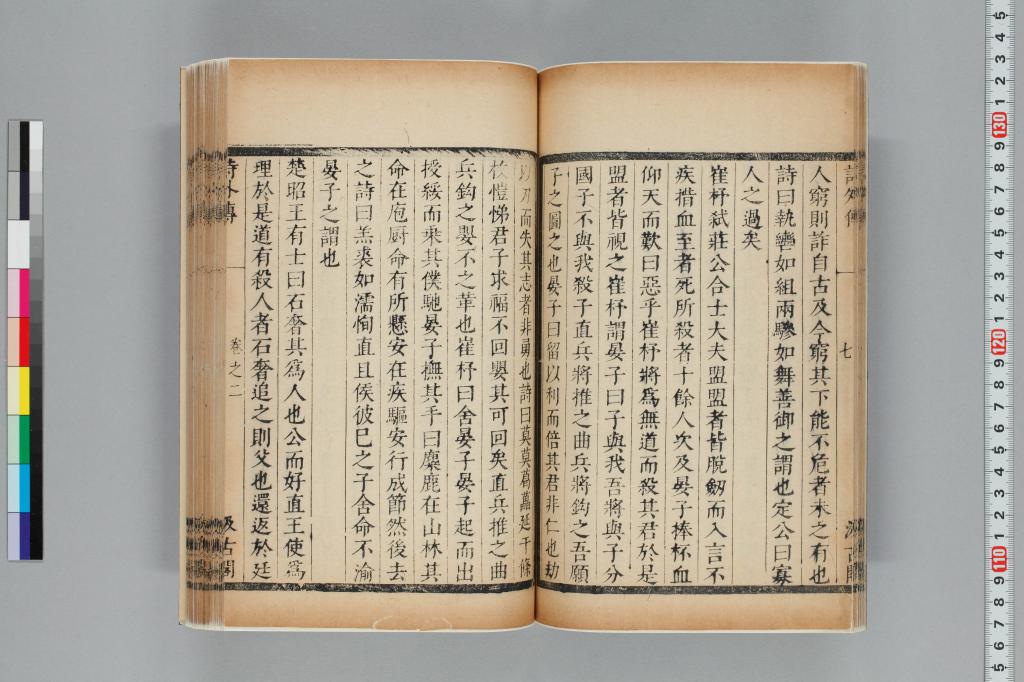 人窮則詐自古及今窮其下能不危者未之有也
詩曰執轡如組兩驂如舞善御之謂也定公曰寡
人之過矣
崔杼弒莊公合士大夫盟盟者皆脫劒而入言不
疾措血至者死所殺者十餘人次及晏子捧杯血
仰天而歎曰惡乎崔杼將爲無道而殺其君於是
盟者皆視之崔杼謂晏子曰子與我吾將與子分
國子不與我殺子直兵將推之曲兵將鈎之吾願
子之圖之也晏子曰留以利而倍其君非仁也劫
以刃而失其志者非勇也詩曰莫莫葛藟延于條
枚愷悌君子求福不回嬰其可回矣直兵推之曲
兵鈎之嬰不之革也崔杼曰舍晏子晏子起而出
授綏而乘其僕馳晏子撫其手曰麋鹿在山林其
命在庖厨命有所懸安在疾驅安行成節然後去
之詩曰羔裘如濡恂直且侯彼已之子舍命不渝
晏子之謂也
楚昭王有士曰石奢其爲人也公而好直王使爲
理於是道有殺人者石奢追之則父也還返於廷
詩外傳
卷之二
汲古閣
七